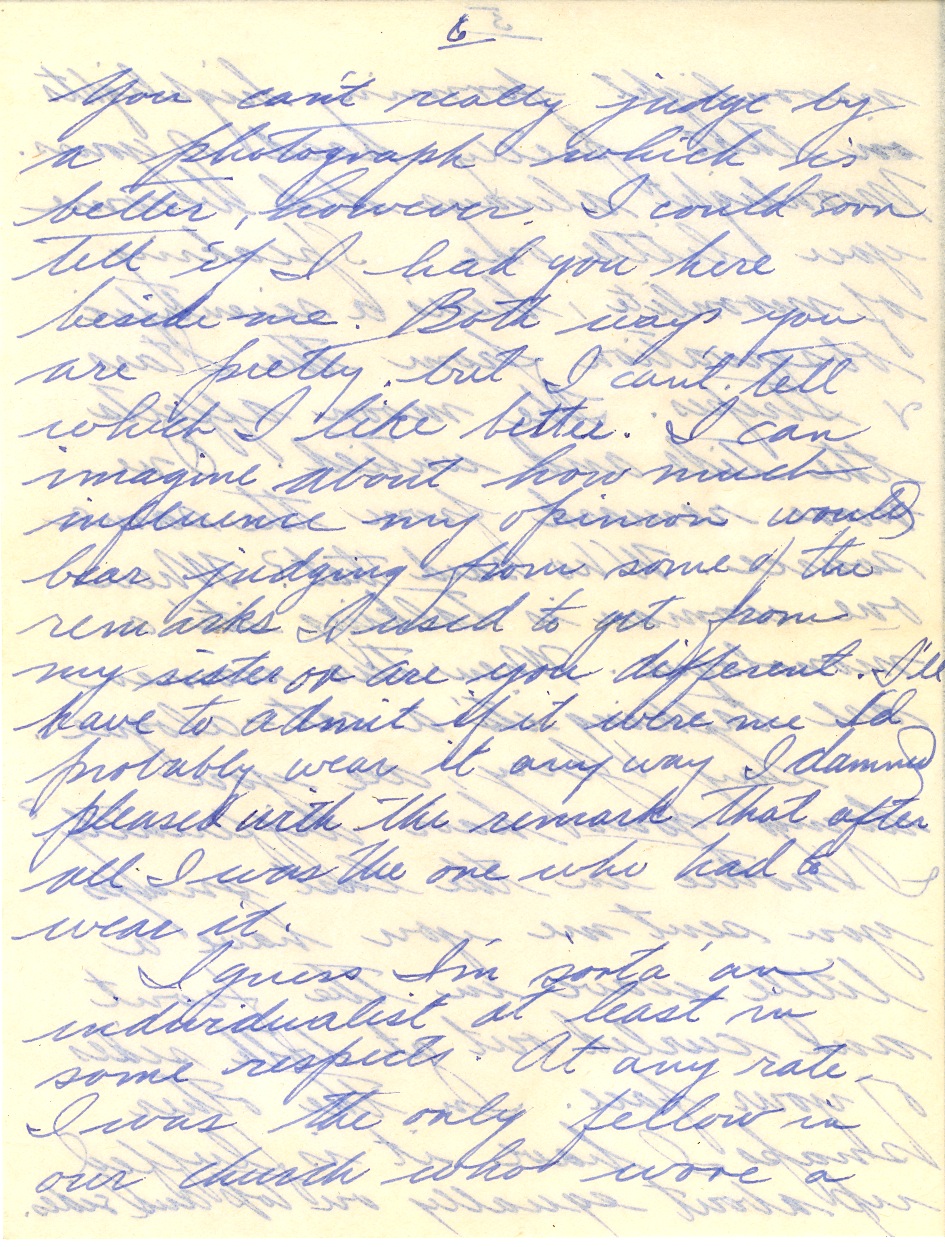 6
You can't really judge by
a photograph which is
better, however. I could soon
tell if I had you here
beside me. Both ways you
are pretty, but I can't tell
which I like better. I can
imagine about how much
influence my opinion would
bear judging from some of the
remarks I used to get from
my sister or are you different. I'll
have to admit if it were me I'd
probably wear it anyway I damned
pleased with the remark that after
all I was the one who had to
wear it.
I guess I'm 'sorta' an
individualist at least in
some respects. At any rate,
I was the only fellow in
our church who wore a